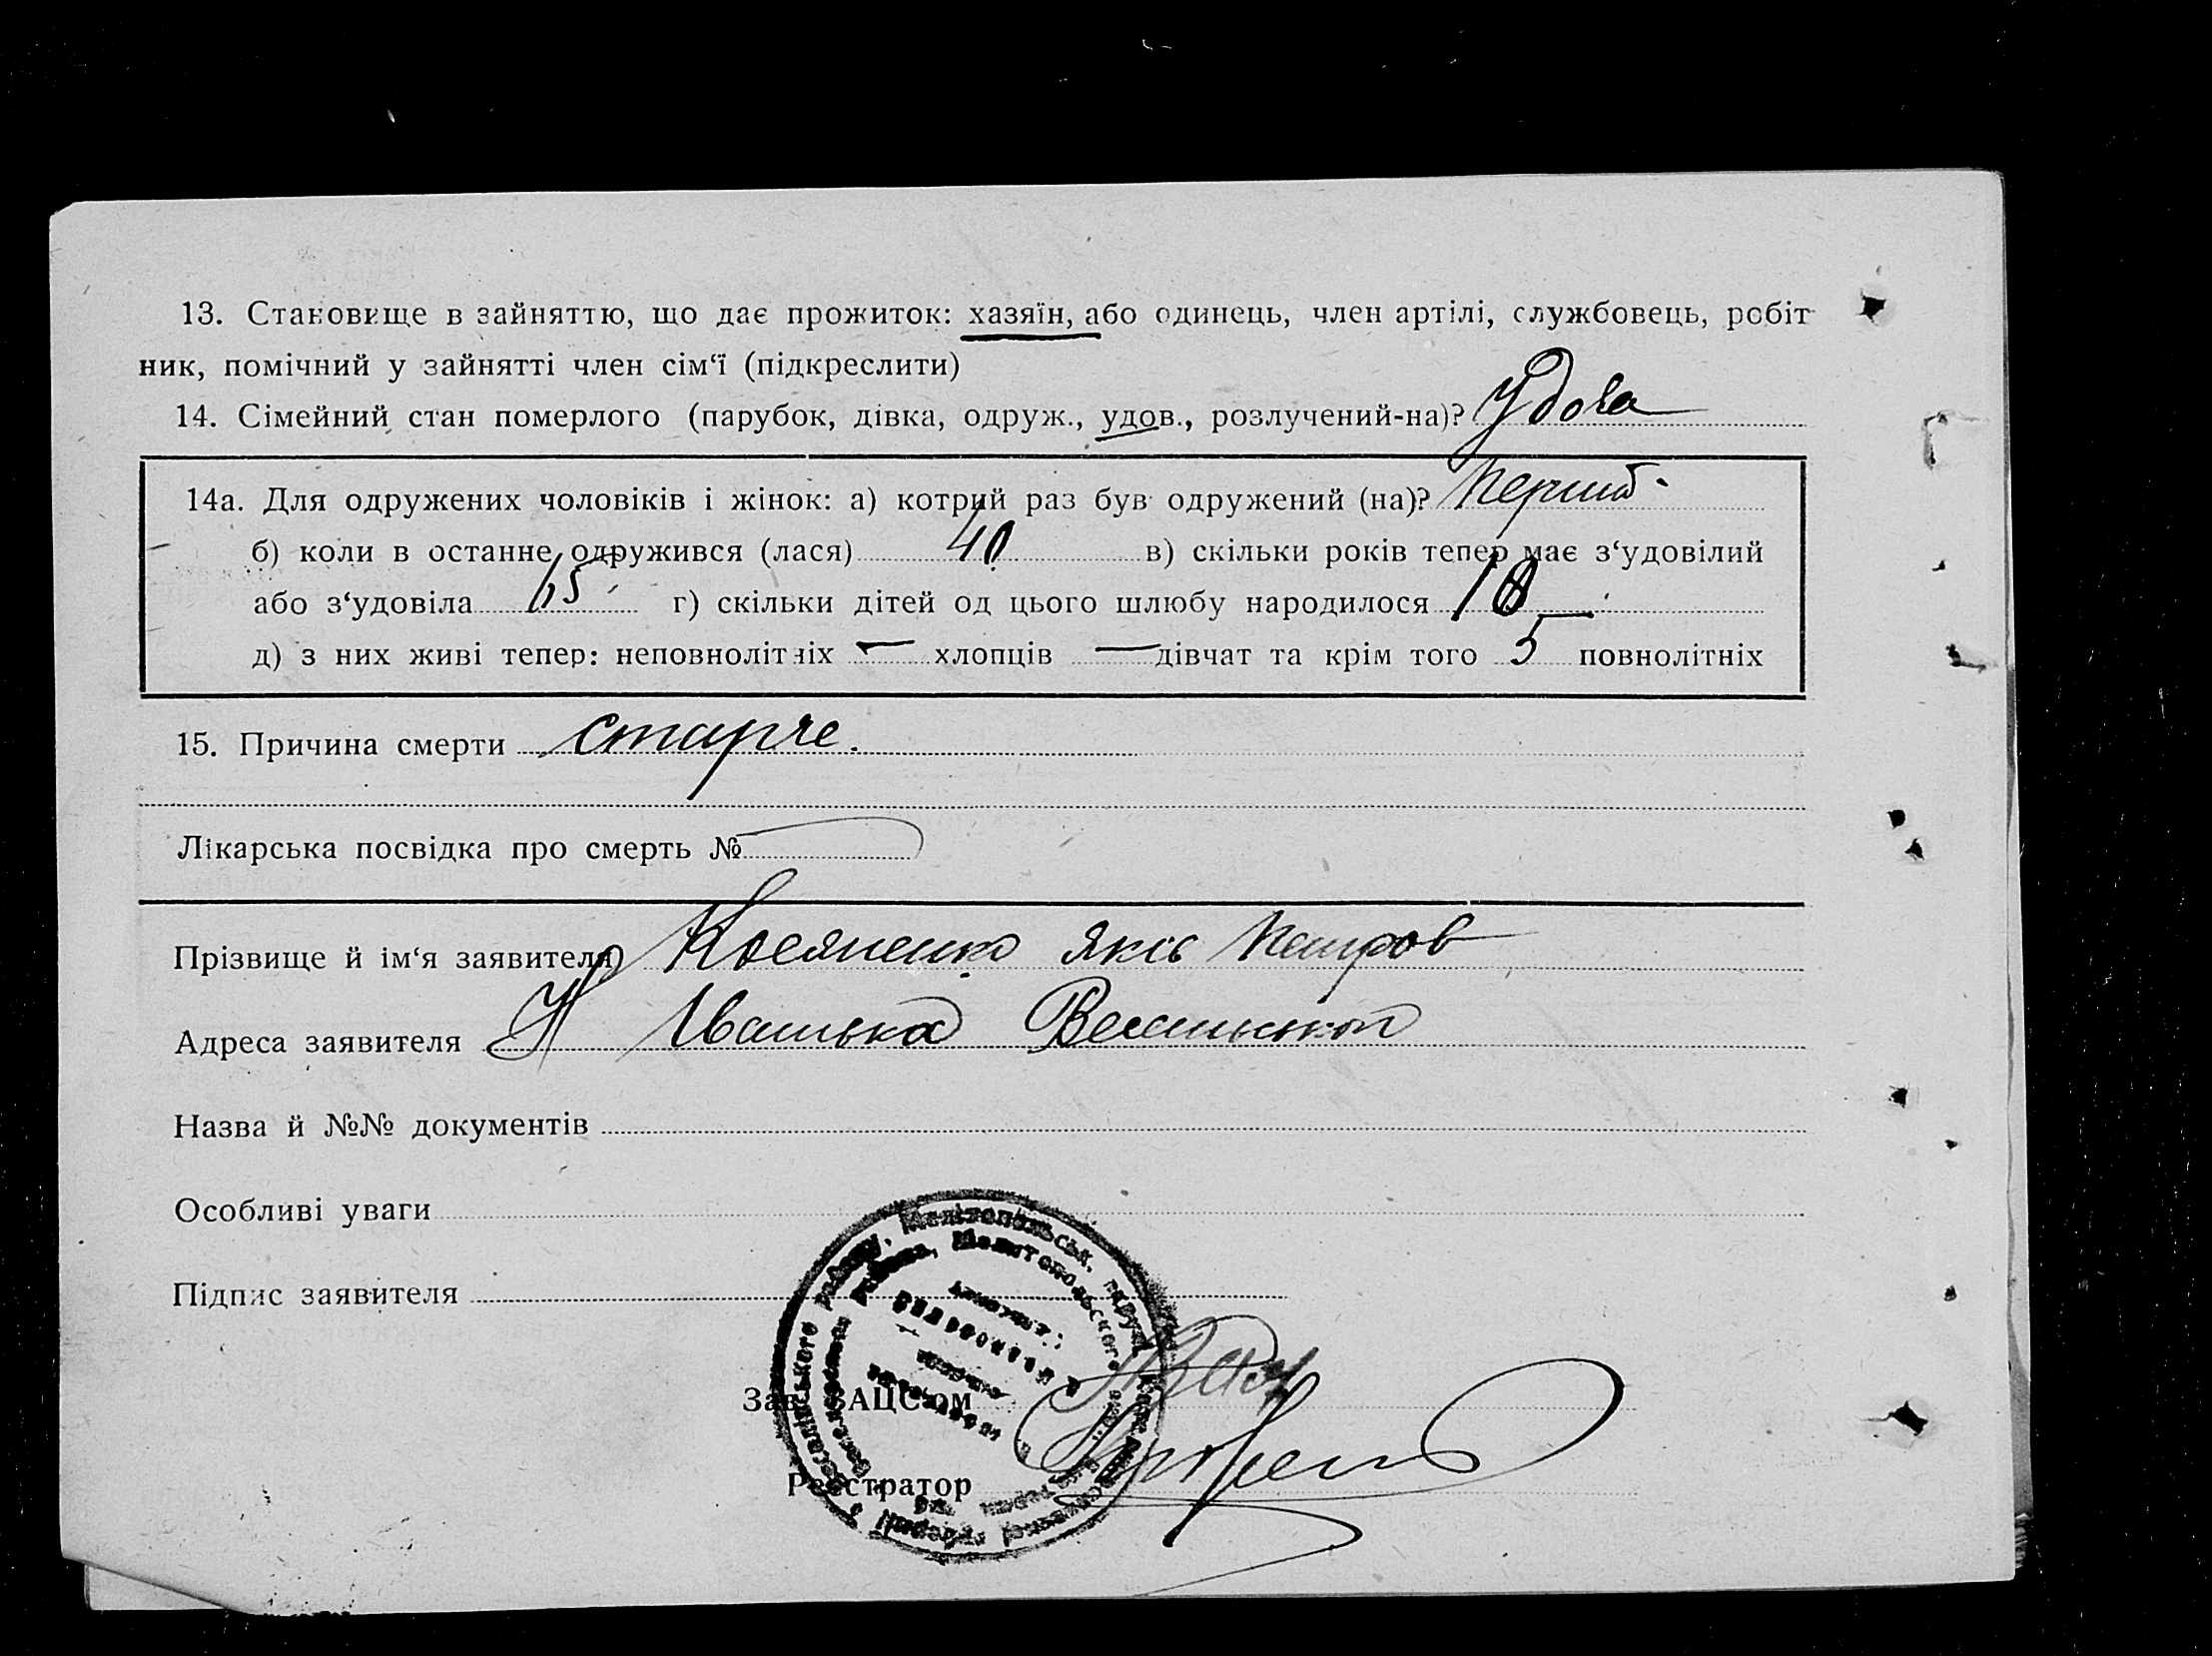 13. Становище в зайняттю, що дає прожиток: хазяїн, або одинець, член артілі, службовець, робіт
ник, помічний у зайнятті член сім‘ї (підкреслити)
14. Сімейний стан померлого (парубок, дівка, одруж., удов., розлучений-на)? Удова
14а. Для одружених чоловіків і жінок: а) котрий раз був одружений (на)? Перший
б) коли в останнє одружився (лася) 40 в) скільки років тепер має з‘удовілий
або з‘удовіла 65 г) скільки дітей од цього шлюбу народилося 10
д) з них живі тепер: неповнолітніх — хлопців — дівчат та крім того 5 повнолітніх
15. Причина смерти старче.
Лікарська посвідка про смерть №
Прізвище й ім‘я заявителя Яків Петров
Адреса заявителя
Назва й №№ документів
Особливі уваги
Підпис заявителя
Зав. ЗАЦС‘ом
Реєстратор